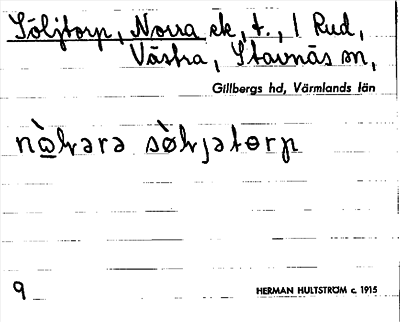 Söljtorp, Norra ek, t., 1 Rud,
Västra, Stavnäs sn,
Gillbergs hd, Värmlands län
9
HERMAN HULTSTRÖM c. 1915